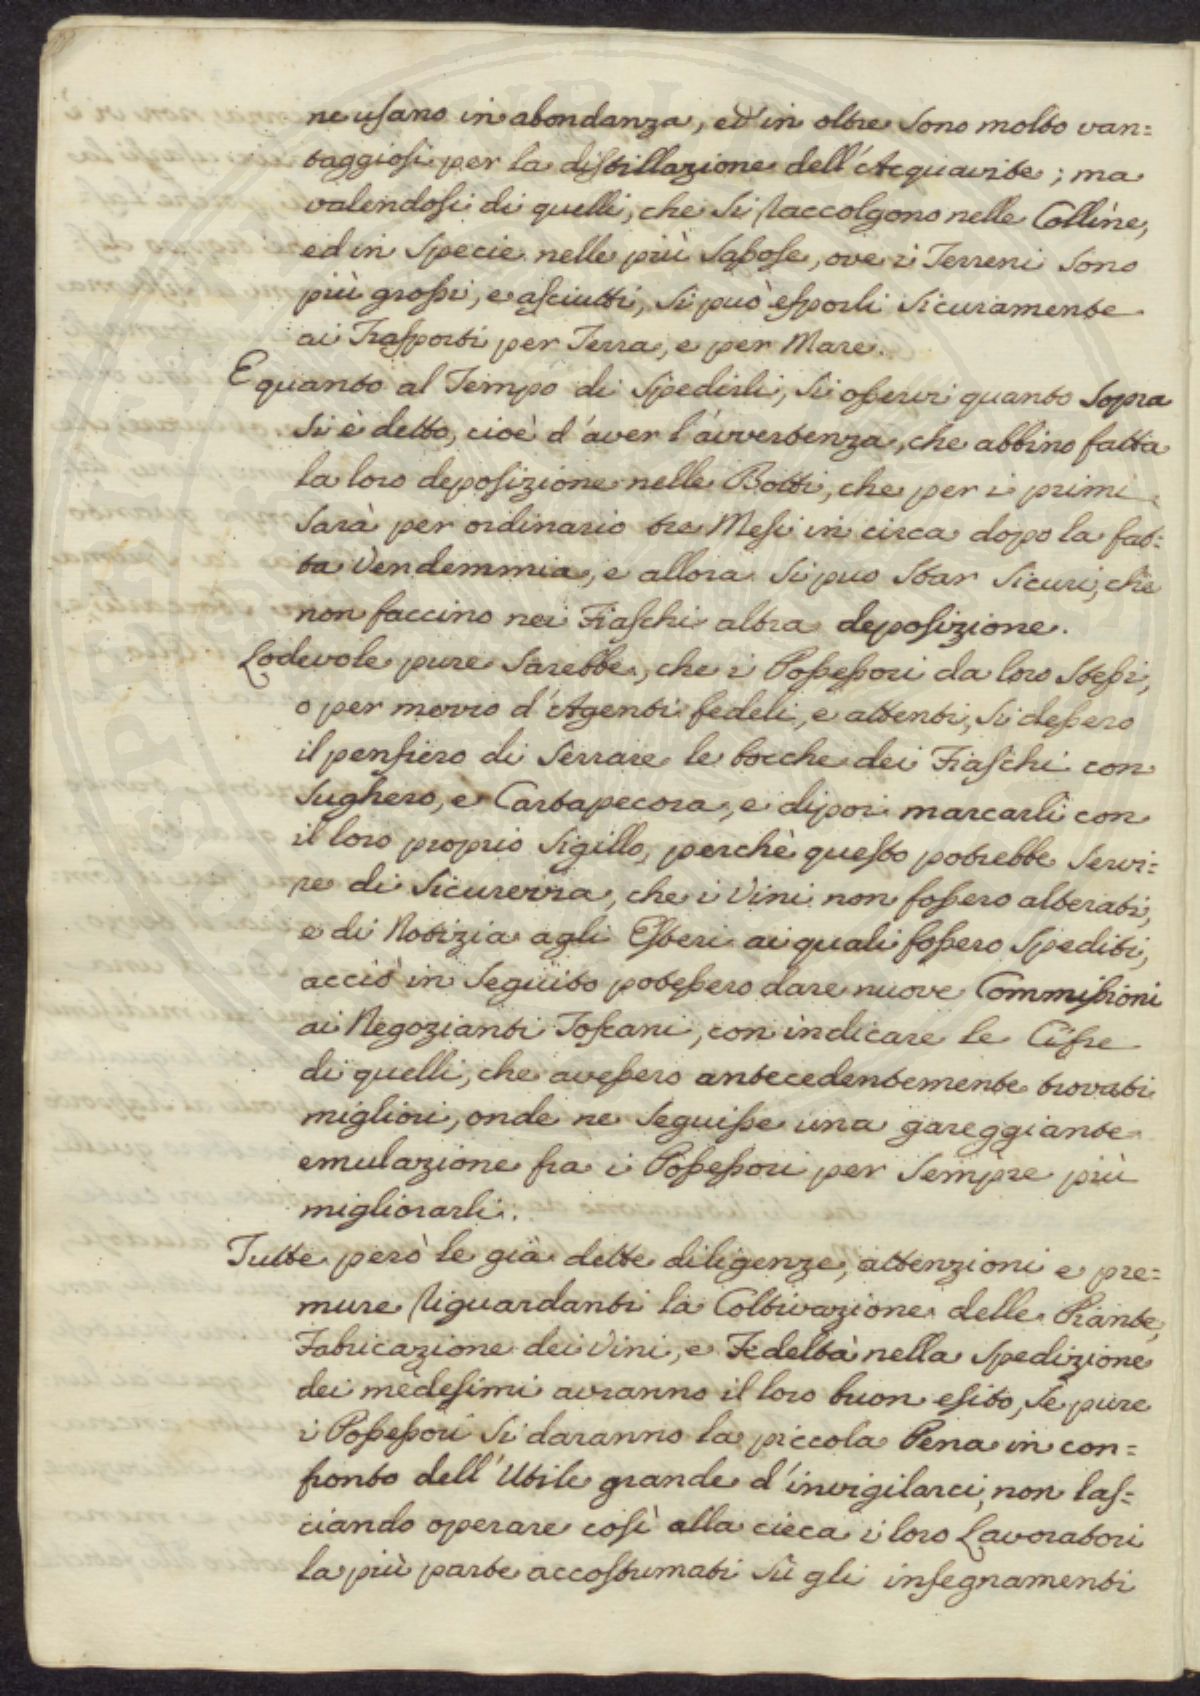 ne usano in abondanza, ed in oltre sono molto van=
taggiosi per la distillazione dell'Acquavite; ma
valendosi di quelli, che si raccolgono nelle Colline,
ed in specie nelle più sassose, ove i Terreni sono
più grossi, e asciutti, si può esporli sicuramente
ai Trasporti per Terra, e per Mare.
E quanto al Tempo di spedirli, si osservi quanto sopra
si è detto, cioè d'aver l'avvertenza, che abbino fatta
la loro deposizione nelle Botti, che per i primi
sarà per ordinario tre Mesi in circa dopo la fat=
ta Vendemmia, e allora si può star sicuri, che
non faccino nei Fiaschi altra deposizione.
Lodevole pure sarebbe, che i Possessori da loro stessi,
o per mezzo d'Agenti fedeli, e attenti, si dessero
il pensiero di serrare le bocche dei Fiaschi con
sughero, e Cartapecora, e dipoi marcarli con
il loro proprio sigillo, perchè questo potrebbe servi=
re di sicurezza, che i Vini non fossero alterati,
e di Notizia agli Esteri ai quali fossero spediti,
acciò in seguito potessero dare nuove Commissioni
ai Negozianti Toscani, con indicare le Cifre
di quelli, che avessero antecedentemente trovati
migliori, onde ne seguisse una gareggiante
emulazione fra i Possessori per sempre più
migliorarli.
Tutte però le già dette diligenze, attenzioni e pre=
mure riguardanti la Coltivazione delle Piante,
Fabricazione dei Vini, e Fedeltà nella spedizione
dei medesimi avranno il loro buon esito, se pure
i Possessori si daranno la piccola Pena in con=
fronto dell'Utile grande d'invigilarci, non las=
ciando operare così alla cieca i loro Lavoratori
la più parte accostumati sù gli insegnamenti